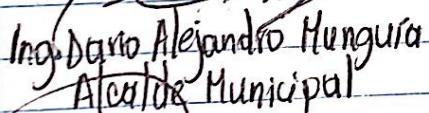 Ing. Dario Alejandro Munguía
Alcalde Municipal